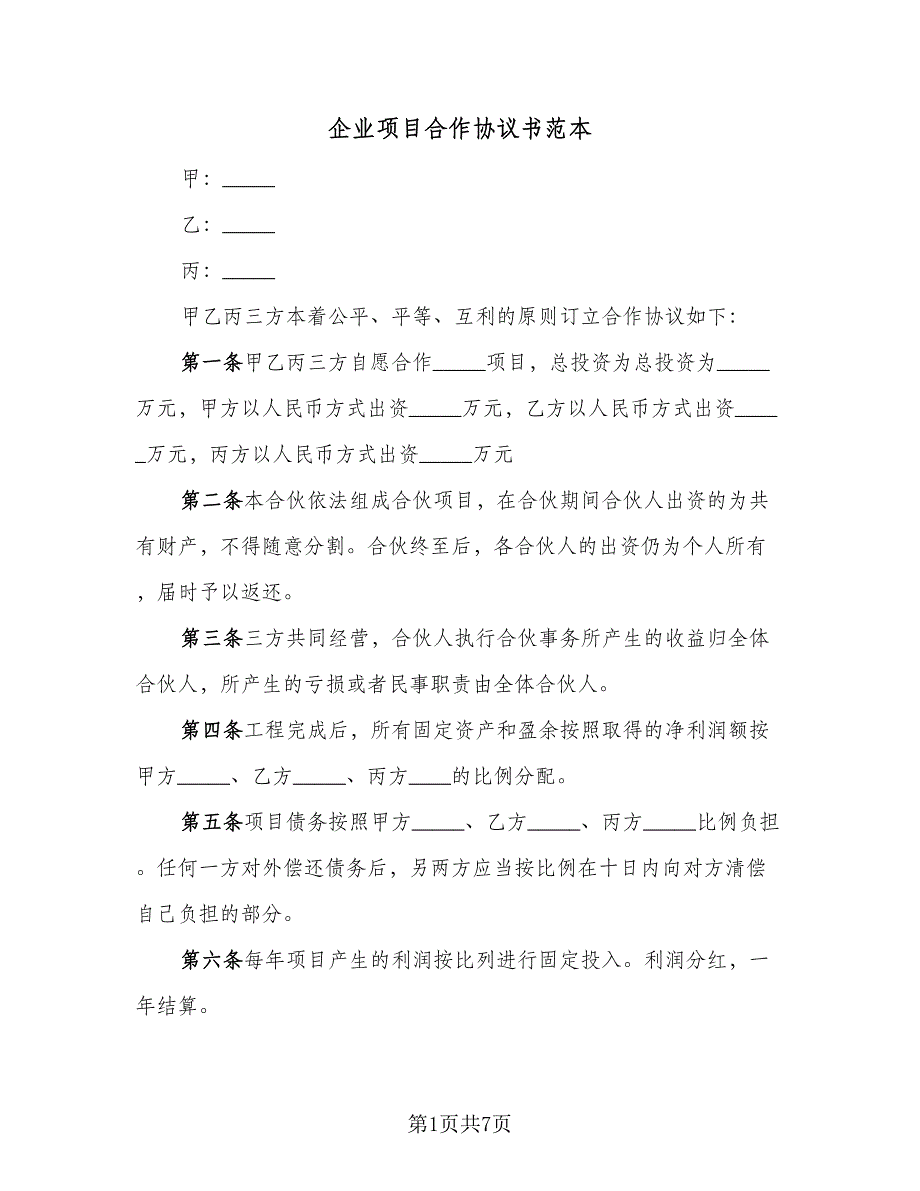 企业项目合作协议书范本
甲：_____
乙：_____
丙：_____
甲乙丙三方本着公平、平等、互利的原则订立合作协议如下：
第一条甲乙丙三方自愿合作_____项目，总投资为总投资为_____
万元，甲方以人民币方式出资_____万元，乙方以人民币方式出资____
_万元，丙方以人民币方式出资_____万元
第二条本合伙依法组成合伙项目，在合伙期间合伙人出资的为共
有财产，不得随意分割。合伙终至后，各合伙人的出资仍为个人所有
，届时予以返还。
第三条三方共同经营，合伙人执行合伙事务所产生的收益归全体
合伙人，所产生的亏损或者民事职责由全体合伙人。
第四条工程完成后，所有固定资产和盈余按照取得的净利润额按
甲方_____、乙方_____、丙方____的比例分配。
第五条项目债务按照甲方_____、乙方_____、丙方_____比例负担
。任何一方对外偿还债务后，另两方应当按比例在十日内向对方清偿
自己负担的部分。
第六条每年项目产生的利润按比列进行固定投入。利润分红，一
年结算。
第1页共7页